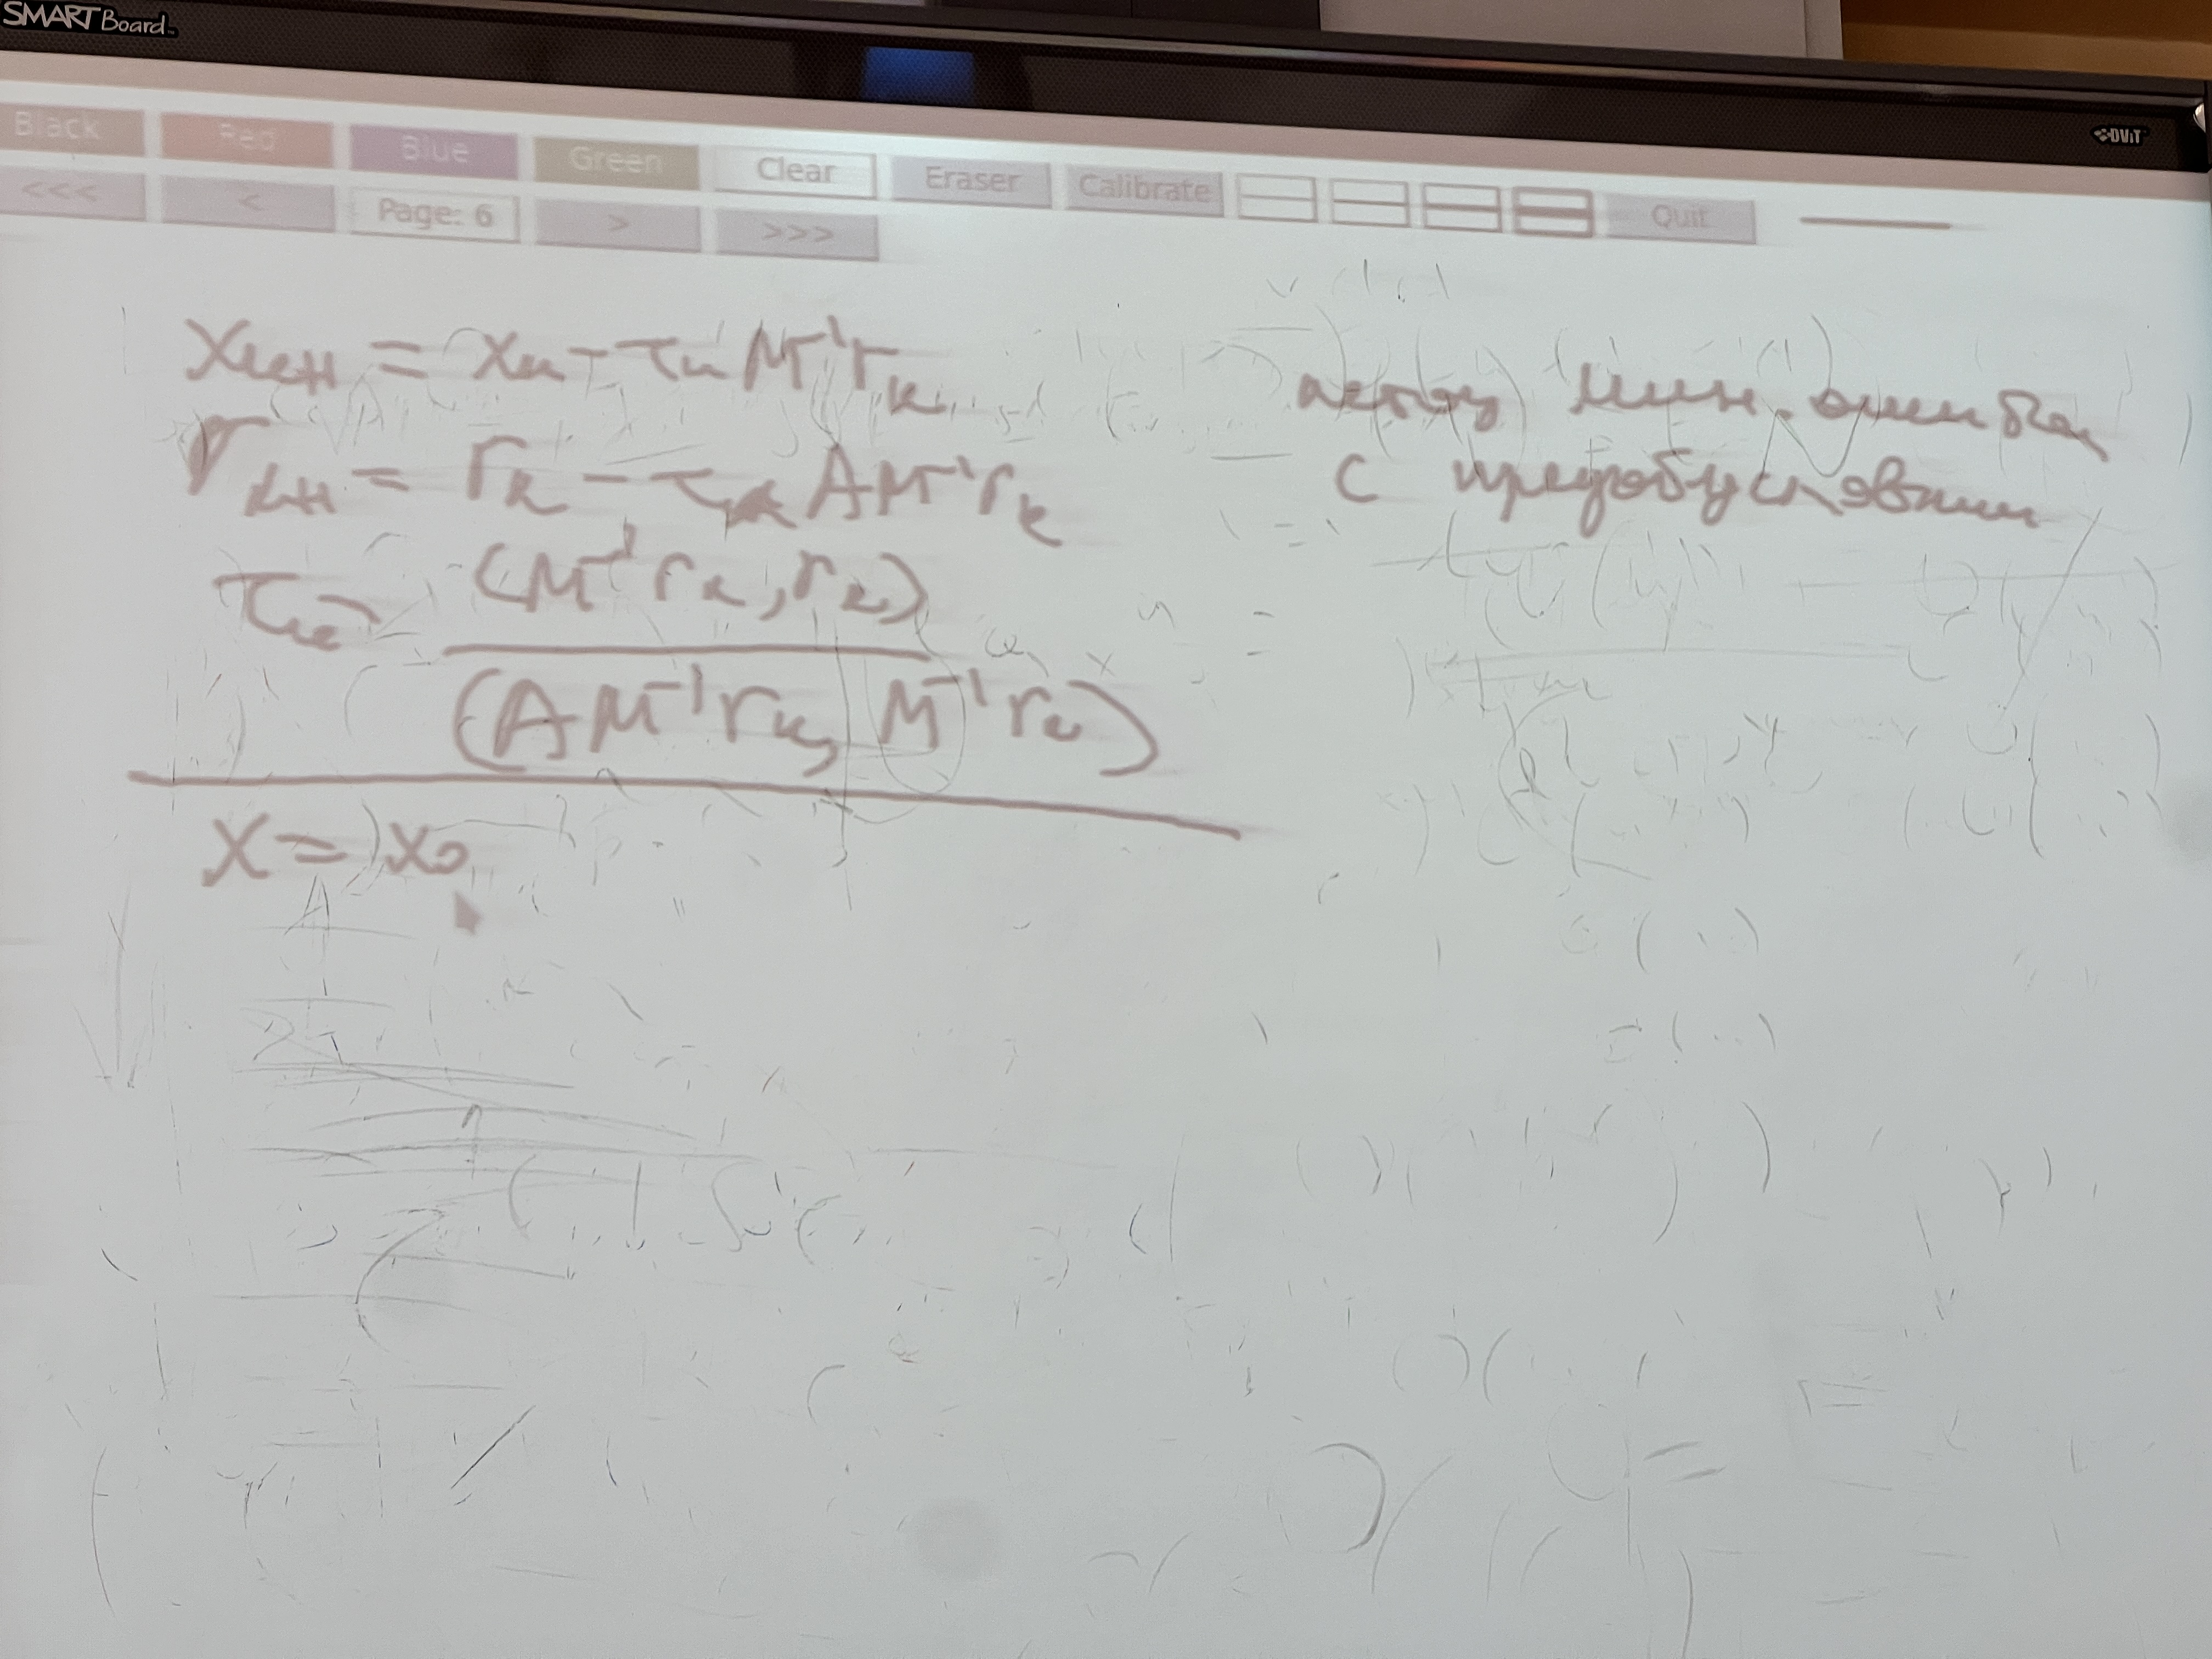 SMART Board
DViT
Black Red Blue Green Clear Eraser Calibrate Quit
<<< < Page: 6 > >>>
x_{k+1} = x_k - τ_k M^{-1} r_k
r_{k+1} = r_k - τ_k A M^{-1} r_k
τ_k = (M^{-1} r_k, r_k)
(A M^{-1} r_k, M^{-1} r_k)
x = x_0
метод мин. ошибки
с предобусловлив